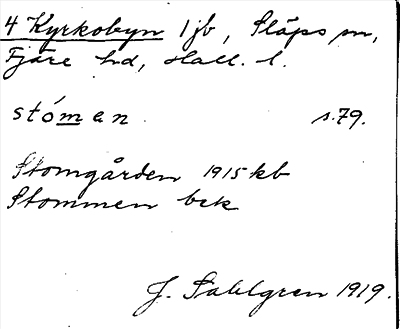 4 Kyrkobyn 1 jb, Släps sn,
Fjäre hd, Hall. l.
stómen s. 79.
Stomgården 1915 kb
Stommen bek
J. Sahlgren 1919.